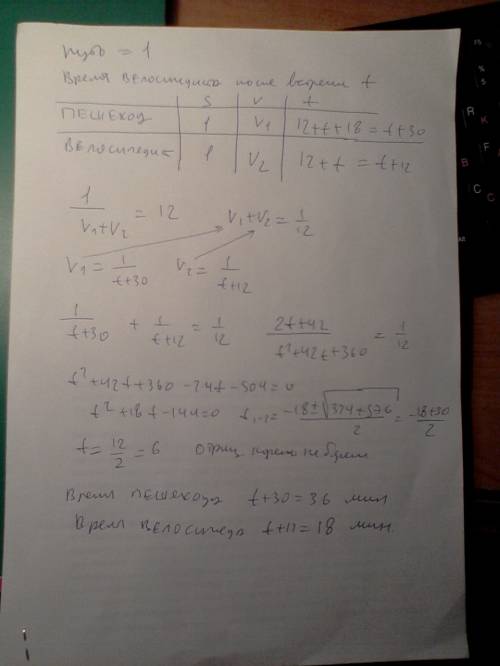 путь = 1
Время велосипедиста после встречи t
S V t
ПЕШЕХОД 1 V₁ 12+t+18 = t+30
ВЕЛОСИПЕДИСТ 1 V₂ 12+t = t+12
1/(V₁+V₂) = 12 V₁+V₂ = 1/12
V₁ = 1/(t+30) V₂ = 1/(t+12)
1/(t+30) + 1/(t+12) = 1/12 (2t+42)/(t²+42t+360) = 1/12
t²+42t+360 -24t-504=0
t²+18t-144=0 t₁,₂= (-18±√(324+576))/2 = (-18+30)/2
t= 12/2 = 6 Отриц корень не берем
Время ПЕШЕХОДА t+30=36 мин
Время ВЕЛОСИПЕДА t+12=18 мин.